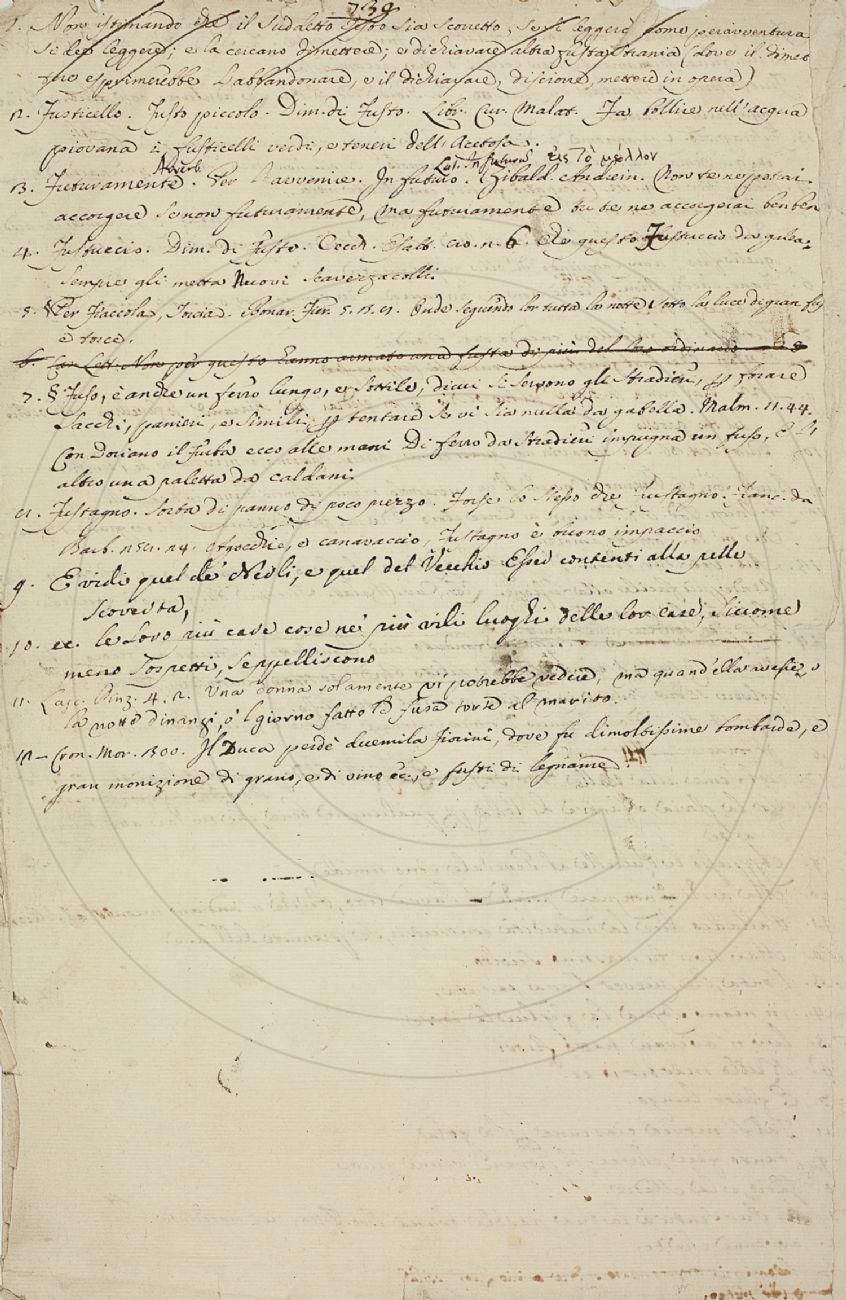 739
1. Non istimando che il sudetto testo sia scorretto, se si leggere come peravventura
si dee leggere; e la cercano dimettere; e dichiarare altra fusta strania (dove il dimet
tere esprimerebbe l'abbandonare, e il dichiarare, disciorre, mettere in opera)
2. Fusticello. Fusto piccolo. Dim. di Fusto. Libr. Cur. Malat. Fa bollire nell'acqua
piovana i fusticelli verdi, e teneri dell'Acetosa.
Avverb. Lat. In futuro, εἰς τὸ μέλλον
3. Futuramente. Per l'avvenire. In futuro. Zibald. Andrein. Non te ne potrai
accorgere se non futuramente, ma futuramente tu te ne accorgerai ben ben
4. Fustuccio. Dim. di Fusto. Cecch. Esalt. cr. n. 6. Che questo Fustuccio da galea
sempre gli metta nuovi scavezzacolli.
5. § Per Fiaccola, Torcia. Bonar. Fier. 5. Onde seguendo lor tutta la notte sotto la luce di gran fus
e torce.
6. Con Lett. Non per questo hanno armato una fusta di più del loro ordinario
7. § Fuso, è anche un ferro lungo, e sottile, di cui si servono gli stradieri, per forare
sacchi, panieri, e simili, per tentare se vi sia nulla da gabella. Malm. 11. 44.
Con Doriano il furba ecco alle mani Di ferro da stradieri impugna un fuso, E l'
altro una paletta da caldani.
8. Fustagno. Sorta di panno di poco prezzo. Forse lo stesso che Frustagno. Franc. da
Barb. Agocchie, e canavaccio, Fustagno è buono impaccio
9. E vidi quel de' Nerli, e quel del Vecchio Esser contenti alla pelle
scoverta,
10. ec. le loro più care cose ne' più vili luoghi delle lor case, siccome
meno sospetti, seppelliscono
11. Lasc. Pinz. 4. 2. Una donna solamente vi potrebbe vedere, ma quand'ella avesse
la notte dinanzi, o 'l giorno fatto le fusa torte al marito.
12 – Cron. Mor. 300. Il Duca perdè duemila Fiorini, dove fu dimoltissime bombarde, e
gran monizione di grano, e di vino ec., e fusti di legname